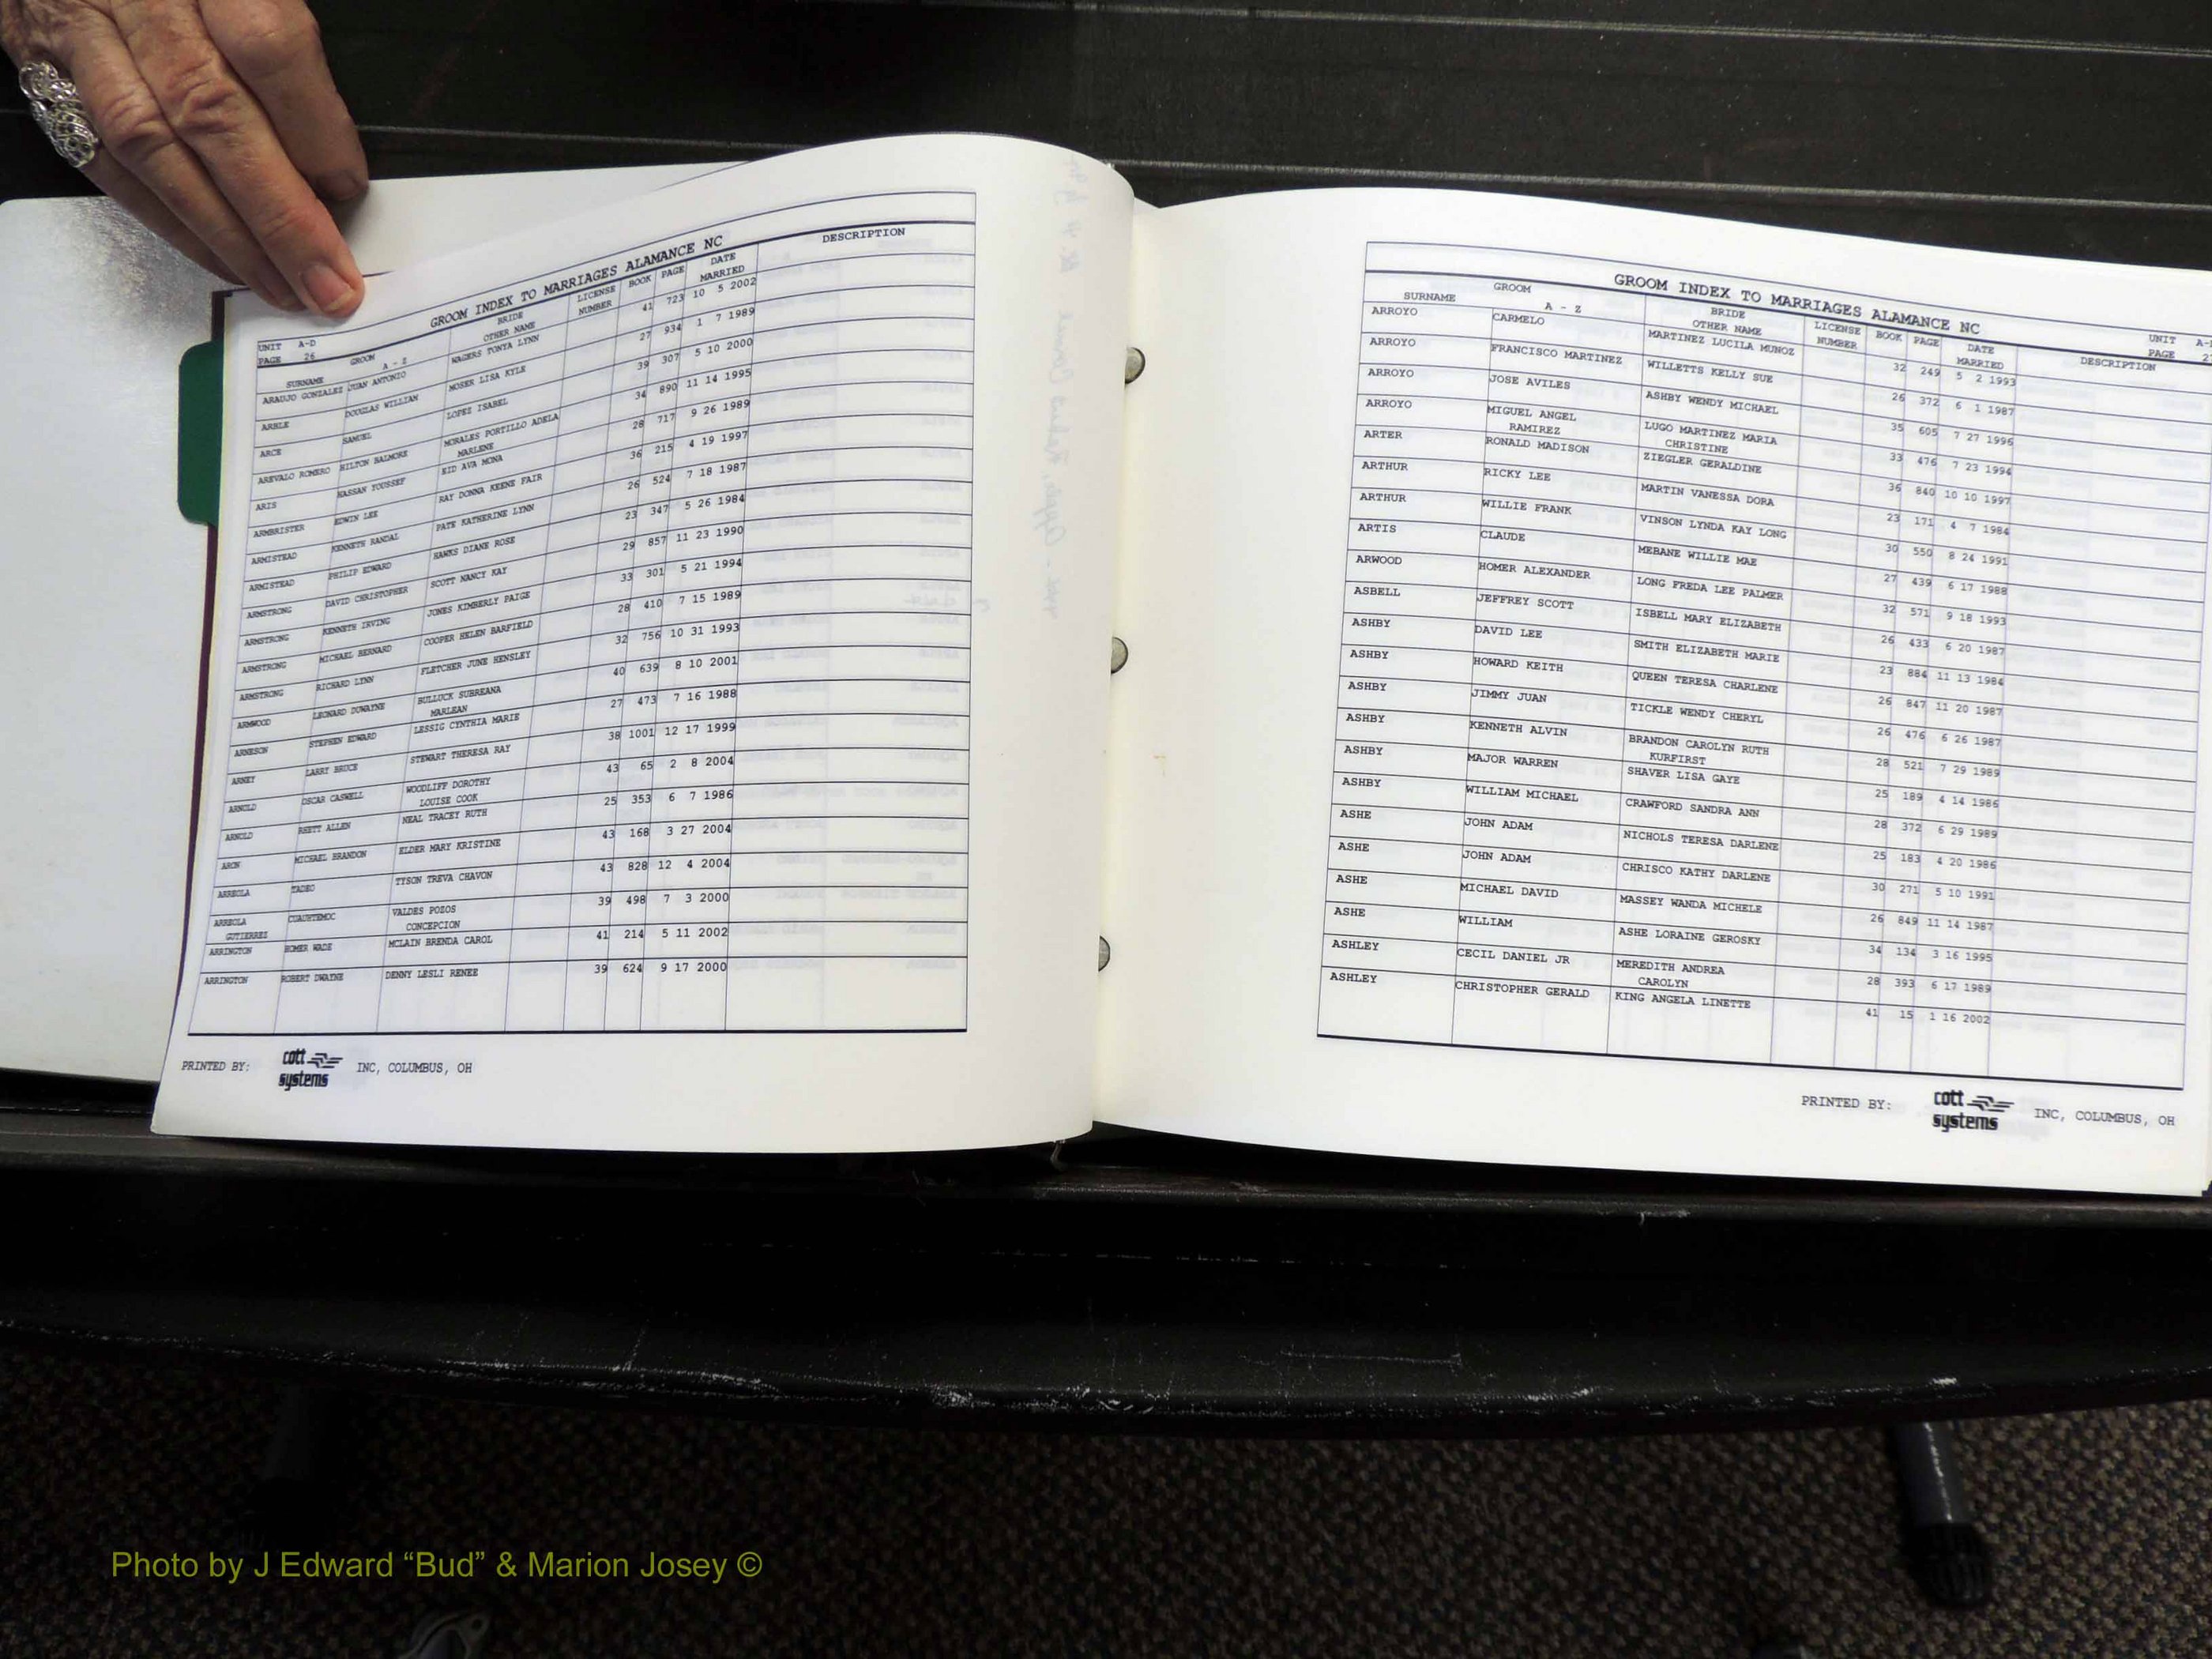 GROOM INDEX TO MARRIAGES ALAMANCE NC
UNIT A-D
PAGE 26
GROOM BRIDE LICENSE BOOK PAGE DATE DESCRIPTION
SURNAME A - Z OTHER NAME NUMBER MARRIED
ARAUJO GONZALEZ JUAN ANTONIO WAGERS TONYA LYNN 41 723 10 5 2002
ARBLE DOUGLAS WILLIAN MOSER LISA KYLE 27 934 1 7 1989
ARCE SAMUEL LOPEZ ISABEL 39 307 5 10 2000
AREVALO ROMERO HILTON BALMORE MORALES PORTILLO ADELA 34 890 11 14 1995
MARLENE
ARIS HASSAN YOUSSEF EID AVA MONA 28 717 9 26 1989
ARMBRISTER EDWIN LEE RAY DONNA KEENE FAIR 36 215 4 19 1997
ARMISTEAD KENNETH RANDAL PATE KATHERINE LYNN 26 524 7 18 1987
ARMISTEAD PHILIP EDWARD HAWKS DIANE ROSE 23 347 5 26 1984
ARMSTRONG DAVID CHRISTOPHER SCOTT NANCY KAY 29 857 11 23 1990
ARMSTRONG KENNETH IRVING JONES KIMBERLY PAIGE 33 301 5 21 1994
ARMSTRONG MICHAEL BERNARD COOPER HELEN BARFIELD 28 410 7 15 1989
ARMSTRONG RICHARD LYNN FLETCHER JUNE HENSLEY 32 756 10 31 1993
ARMWOOD LEONARD DUWAYNE BULLUCK SUBREANA 40 639 8 10 2001
MARLEAN
ARNESON STEPHEN EDWARD LESSIG CYNTHIA MARIE 27 473 7 16 1988
ARNEY LARRY BRUCE STEWART THERESA RAY 38 1001 12 17 1999
ARNOLD OSCAR CASWELL WOODLIFF DOROTHY 43 65 2 8 2004
LOUISE COOK
ARNOLD RHETT ALLEN NEAL TRACEY RUTH 25 353 6 7 1986
ARON MICHAEL BRANDON ELDER MARY KRISTINE 43 168 3 27 2004
ARREOLA TADEO TYSON TREVA CHAVON 43 828 12 4 2004
ARREOLA CUAUHTEMOC VALDES POZOS 39 498 7 3 2000
GUTIERREZ CONCEPCION
ARRINGTON HOMER WADE MCLAIN BRENDA CAROL 41 214 5 11 2002
ARRINGTON ROBERT DWAYNE DENNY LESLI RENEE 39 624 9 17 2000
PRINTED BY: cott systems INC, COLUMBUS, OH
GROOM INDEX TO MARRIAGES ALAMANCE NC
UNIT A-
PAGE 2
GROOM BRIDE LICENSE BOOK PAGE DATE DESCRIPTION
SURNAME A - Z OTHER NAME NUMBER MARRIED
ARROYO CARMELO MARTINEZ LUCILA MUNOZ 32 249 5 2 1993
ARROYO FRANCISCO MARTINEZ WILLETTS KELLY SUE 26 372 6 1 1987
ARROYO JOSE AVILES ASHBY WENDY MICHAEL 35 605 7 27 1996
ARROYO MIGUEL ANGEL LUGO MARTINEZ MARIA 33 476 7 23 1994
RAMIREZ CHRISTINE
ARTER RONALD MADISON ZIEGLER GERALDINE 36 840 10 10 1997
ARTHUR RICKY LEE MARTIN VANESSA DORA 23 171 4 7 1984
ARTHUR WILLIE FRANK VINSON LYNDA KAY LONG 30 550 8 24 1991
ARTIS CLAUDE MEBANE WILLIE MAE 27 439 6 17 1988
ARWOOD HOMER ALEXANDER LONG FREDA LEE PALMER 32 571 9 18 1993
ASBELL JEFFREY SCOTT ISBELL MARY ELIZABETH 26 433 6 20 1987
ASHBY DAVID LEE SMITH ELIZABETH MARIE 23 884 11 13 1984
ASHBY HOWARD KEITH QUEEN TERESA CHARLENE 26 847 11 20 1987
ASHBY JIMMY JUAN TICKLE WENDY CHERYL 26 476 6 26 1987
ASHBY KENNETH ALVIN BRANDON CAROLYN RUTH 28 521 7 29 1989
KURFIRST
ASHBY MAJOR WARREN SHAVER LISA GAYE 25 189 4 14 1986
ASHBY WILLIAM MICHAEL CRAWFORD SANDRA ANN 28 372 6 29 1989
ASHE JOHN ADAM NICHOLS TERESA DARLENE 25 183 4 20 1986
ASHE JOHN ADAM CHRISCO KATHY DARLENE 30 271 5 10 1991
ASHE MICHAEL DAVID MASSEY WANDA MICHELE 26 849 11 14 1987
ASHE WILLIAM ASHE LORAINE GEROSKY 34 134 3 16 1995
ASHLEY CECIL DANIEL JR MEREDITH ANDREA 28 393 6 17 1989
CAROLYN
ASHLEY CHRISTOPHER GERALD KING ANGELA LINETTE 41 15 1 16 2002
PRINTED BY: cott systems INC, COLUMBUS, OH
Photo by J Edward “Bud” & Marion Josey ©